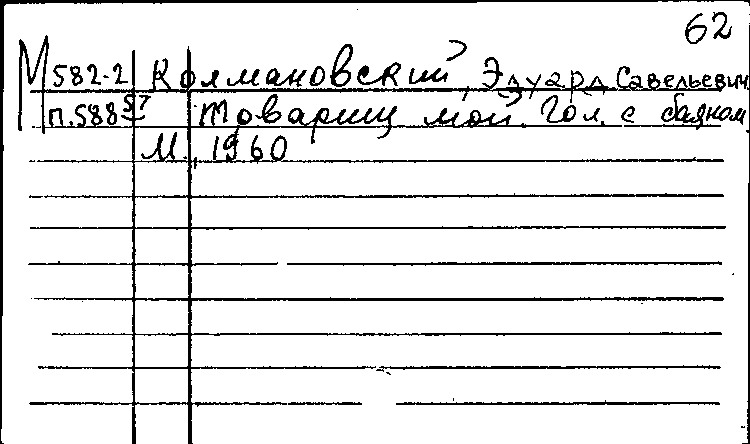 62
М 582-2 Колмановский, Эдуард Савельевич
п.588 57 Товарищ мой. Гол. с баяном
М., 1960